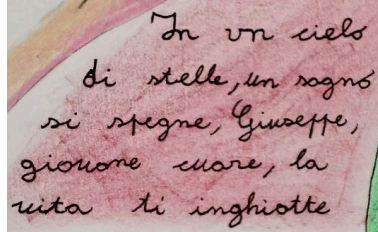 In un cielo
di stelle, un sogno
si spegne, Giuseppe,
giovane cuore, la
vita ti inghiotte